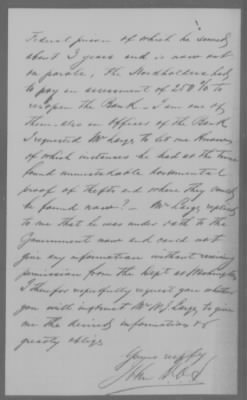 Federal prison of which he served
about 3 years and is now out
on parole, the Stockholders had
to pay an assessment of 250% to
reopen the Bank. I am one of
them also an Officer of the Bank
I requested Mr to let me know
of which instances he had at the time
found unmistakable documental
proof of thefts and where they could
be found now? — Mr replied
to me that he was under oath to the
Government now and could not
give any information without
permission from the Dept at Washington
I therefor respectfully request you whether
you will instruct Mr to give
me the desired information &
greatly oblige
Yours respfly
John